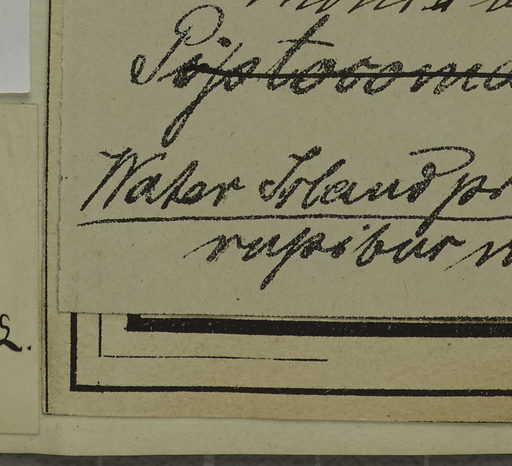 Pistorosma
Water Island pr
rupibus
2.